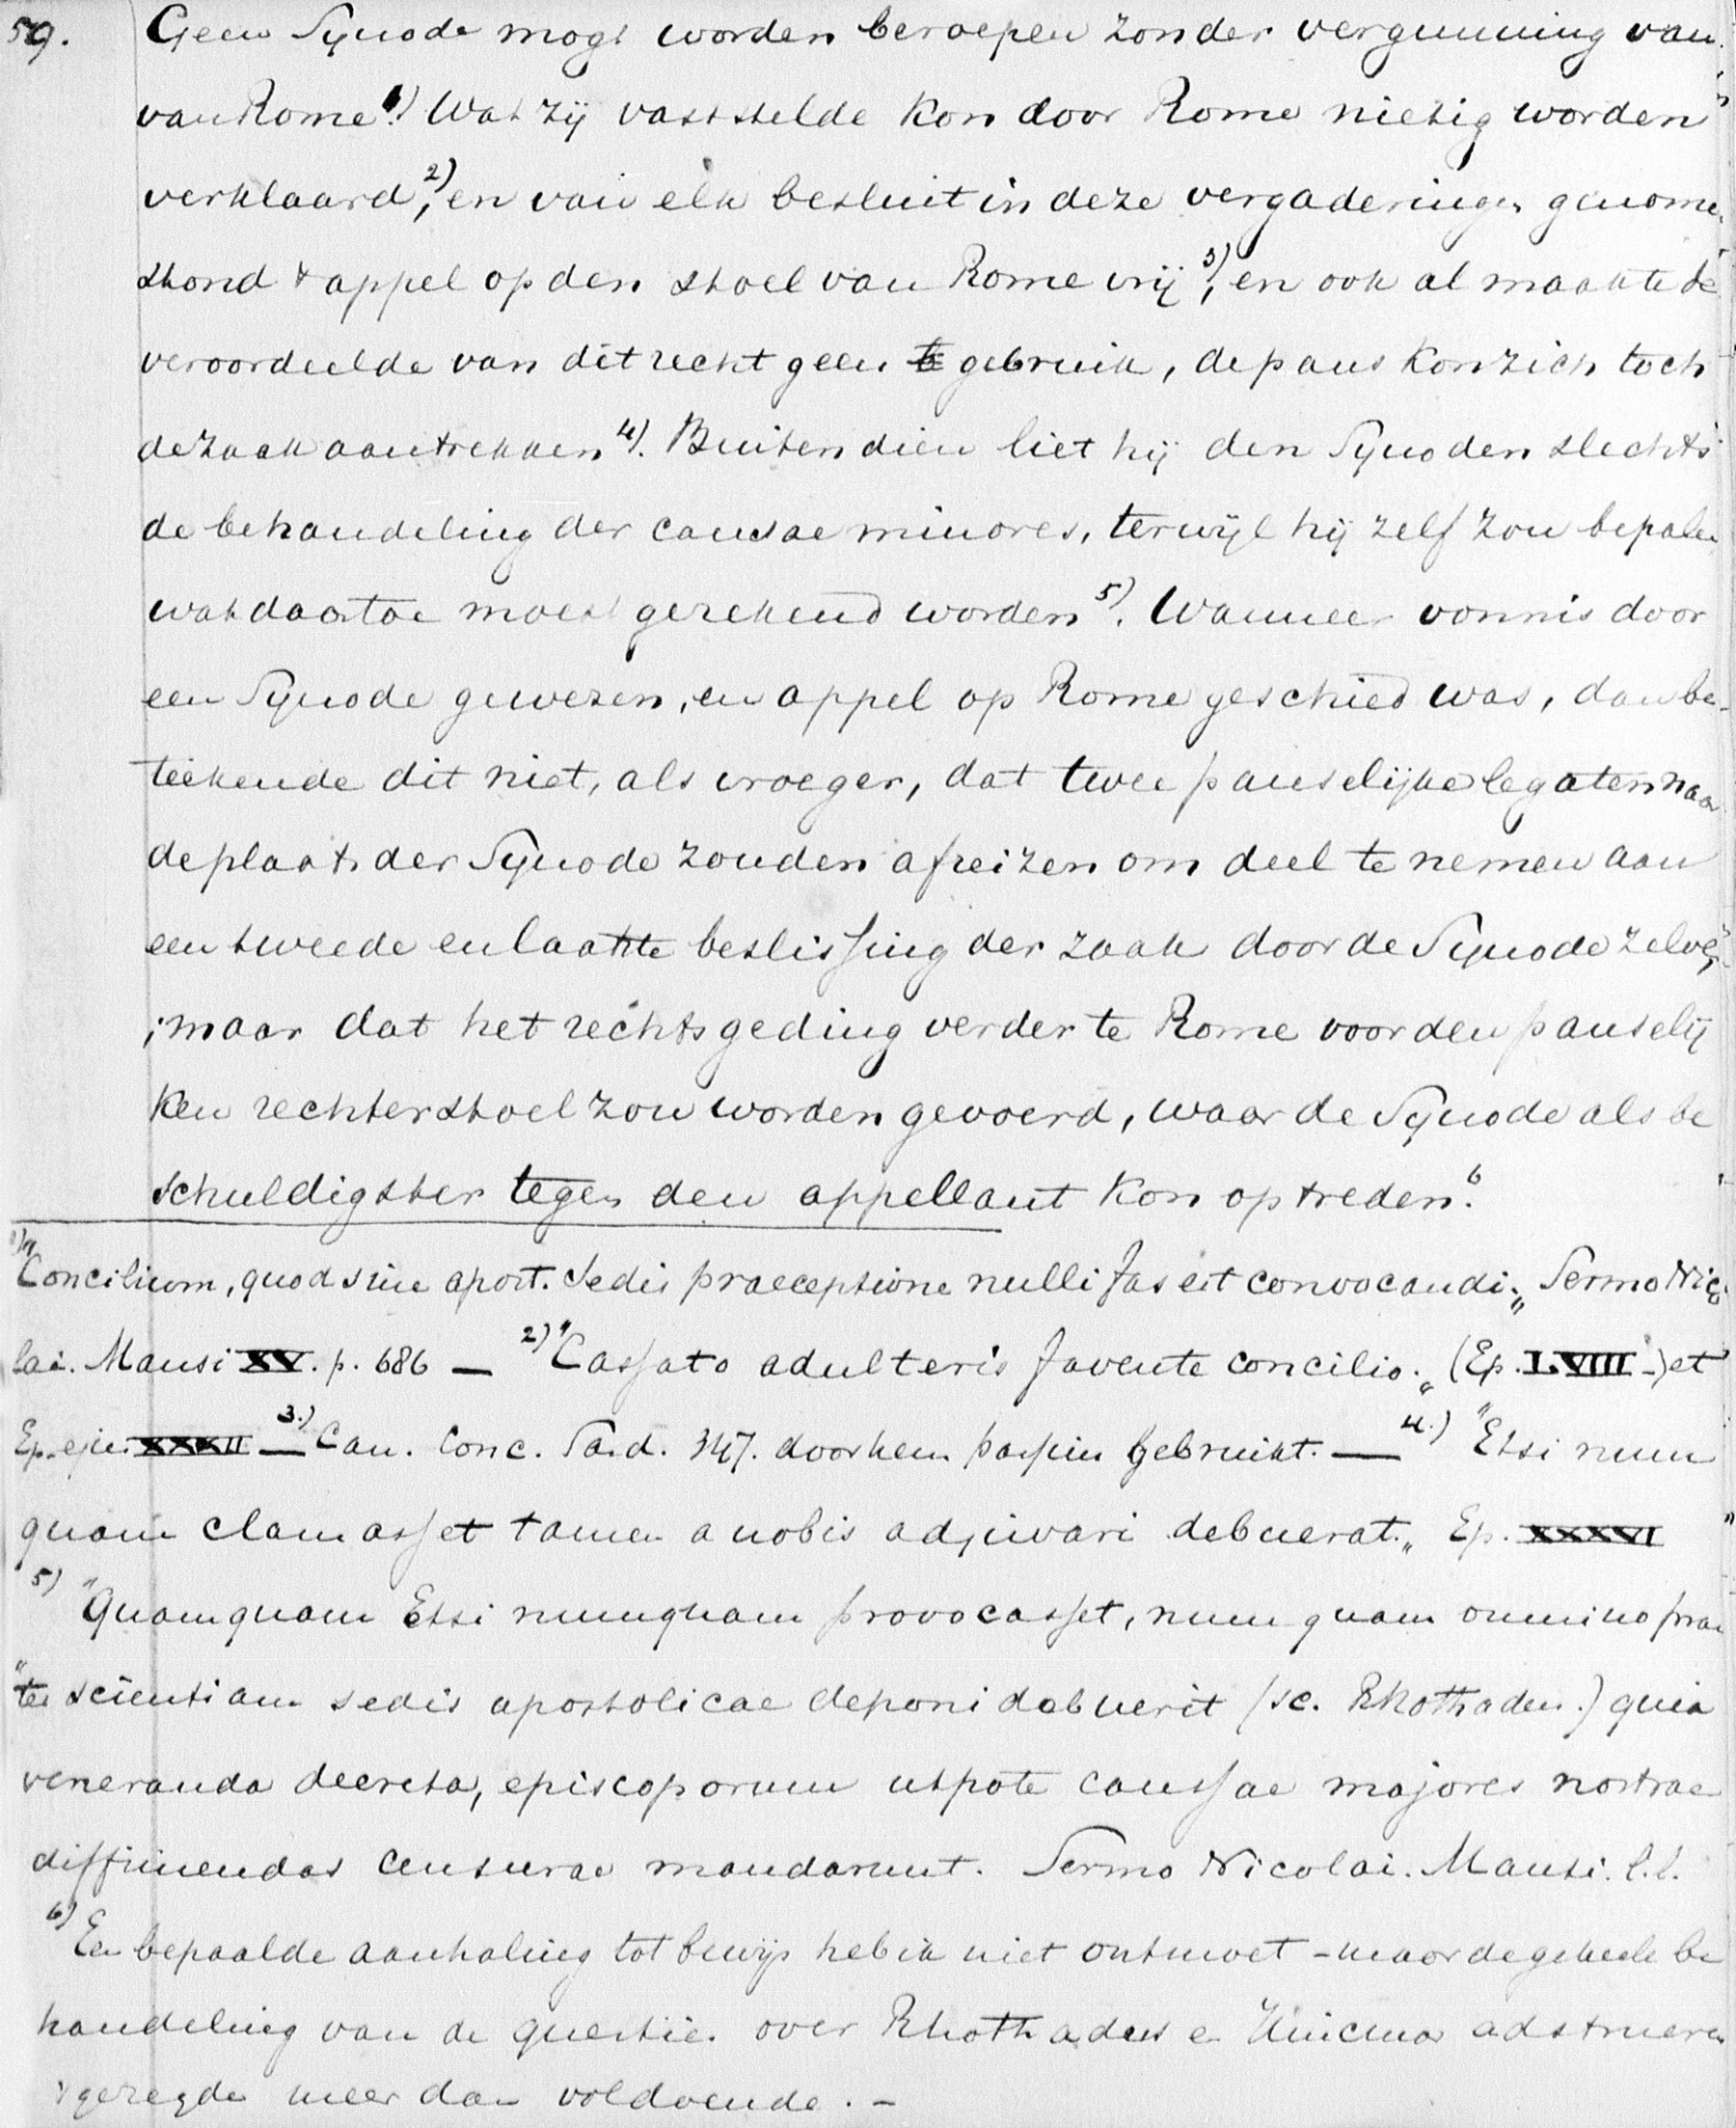 59. Geen Synode mogt worden beroepen zonder vergunning van
van Rome 1). Wat zij vaststelde kon door Rome nietig worden
verklaard, 2) en van elk besluit in deze vergaderingen genomen
stond 't appel op den stoel van Rome vrij 3), en ook al maakte de
veroordeelde van dit recht geen gebruik, de paus kon zich toch
de zaak aantrekken 4). Buitendien liet hij den Synoden slechts
de behandeling der causae minores, terwijl hij zelf zou bepalen
wat daartoe moest gerekend worden 5). Wanneer vonnis door
een Synode gewezen, en appel op Rome geschied was, dan be-
teekende dit niet, als vroeger, dat twee pauselijke legaten naar
de plaats der Synode zouden afreizen om deel te nemen aan
een tweede en laatste beslissing der zaak door de Synode zelve,
; maar dat het rechtsgeding verder te Rome voor den pauselij
ken rechterstoel zou worden gevoerd, waar de Synode als be
schuldigster tegen den appellant kon optreden. 6
1) "Concilium, quod sine apost. Sedis praeceptione nulli fas est convocandi." Sermo Nico
lai. Mansi XV. p. 686 — 2) "Cassato adulteris favente concilio." (Ep. LVIII.) et
Ep. ejus. XXXII — 3.) Can. Conc. Sard. 3 4 7. door hem passim gebruikt. — 4.) "Etsi nun
quam clamasset tamen a nobis adjuvari debuerat." Ep. XXXVI "
5) "Quamquam Etsi numquam provocasset, numquam omnino prae
"ter scientiam sedis apostolicae deponi debuerit (sc. Rhothadus.) quia
veneranda decreta, episcoporum utpote caussae majores nostrae
diffiniendas censurae mandarunt. Sermo Nicolai. Mansi. l.l.
6) Een bepaalde aanhaling tot bewijs heb ik niet ontmoet - maar de geheele be
handeling van de questie. over Rhothadus en Hincmar adstrueren
't gezegde meer dan voldoende. -